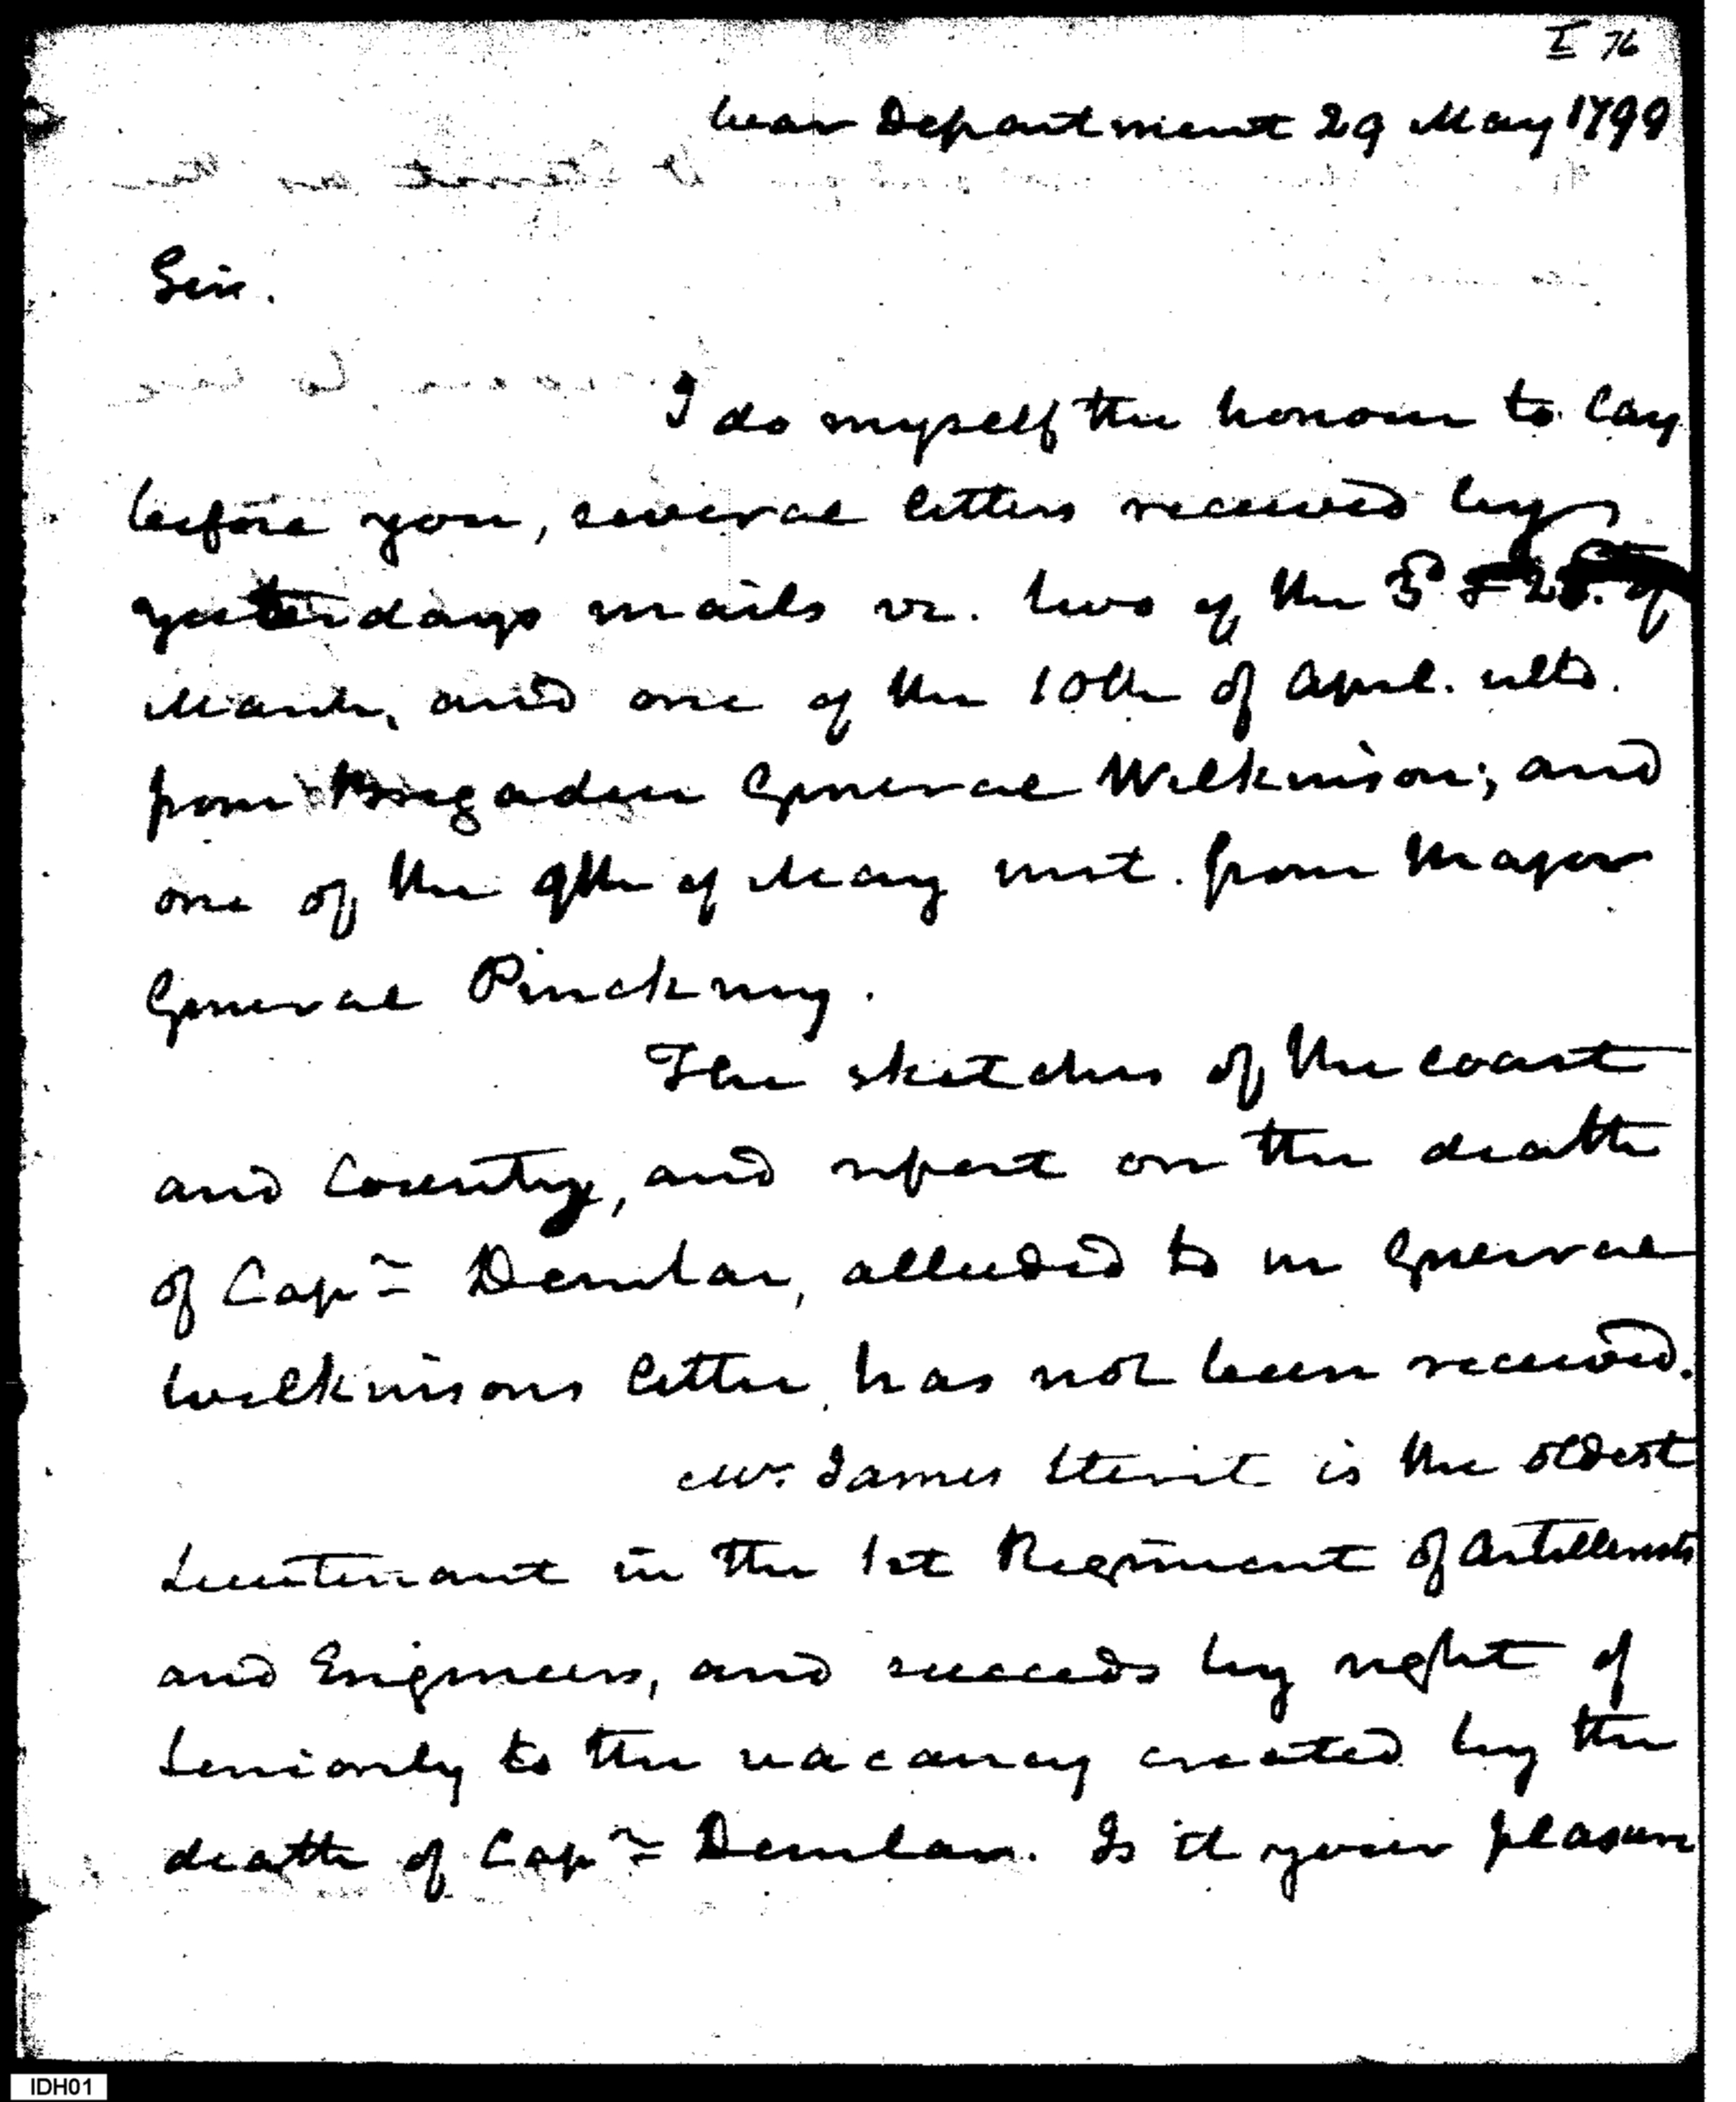 I 76
War Department 29 May 1799
Sir.
I do myself the honour to lay
before you, several letters received by
yesterdays mails vz. two of the 3d & 28. of
March, and one of the 10th of April. ulto.
from Brigadier General Wilkinson; and
one of the 9th of May inst. from Major
General Pinckney.
The sketches of the coast
and Country, and report on the death
of Capn Demlar, alluded to in General
Wilkinsons letter, has not been received.
Mr. James Sterit is the oldest
Lieutenant in the 1st Regiment of Artillerists
and Engineers, and succeeds by right of
Seniority to the vacancy created by the
death of Capn Demlar. Is it your pleasure
IDH01